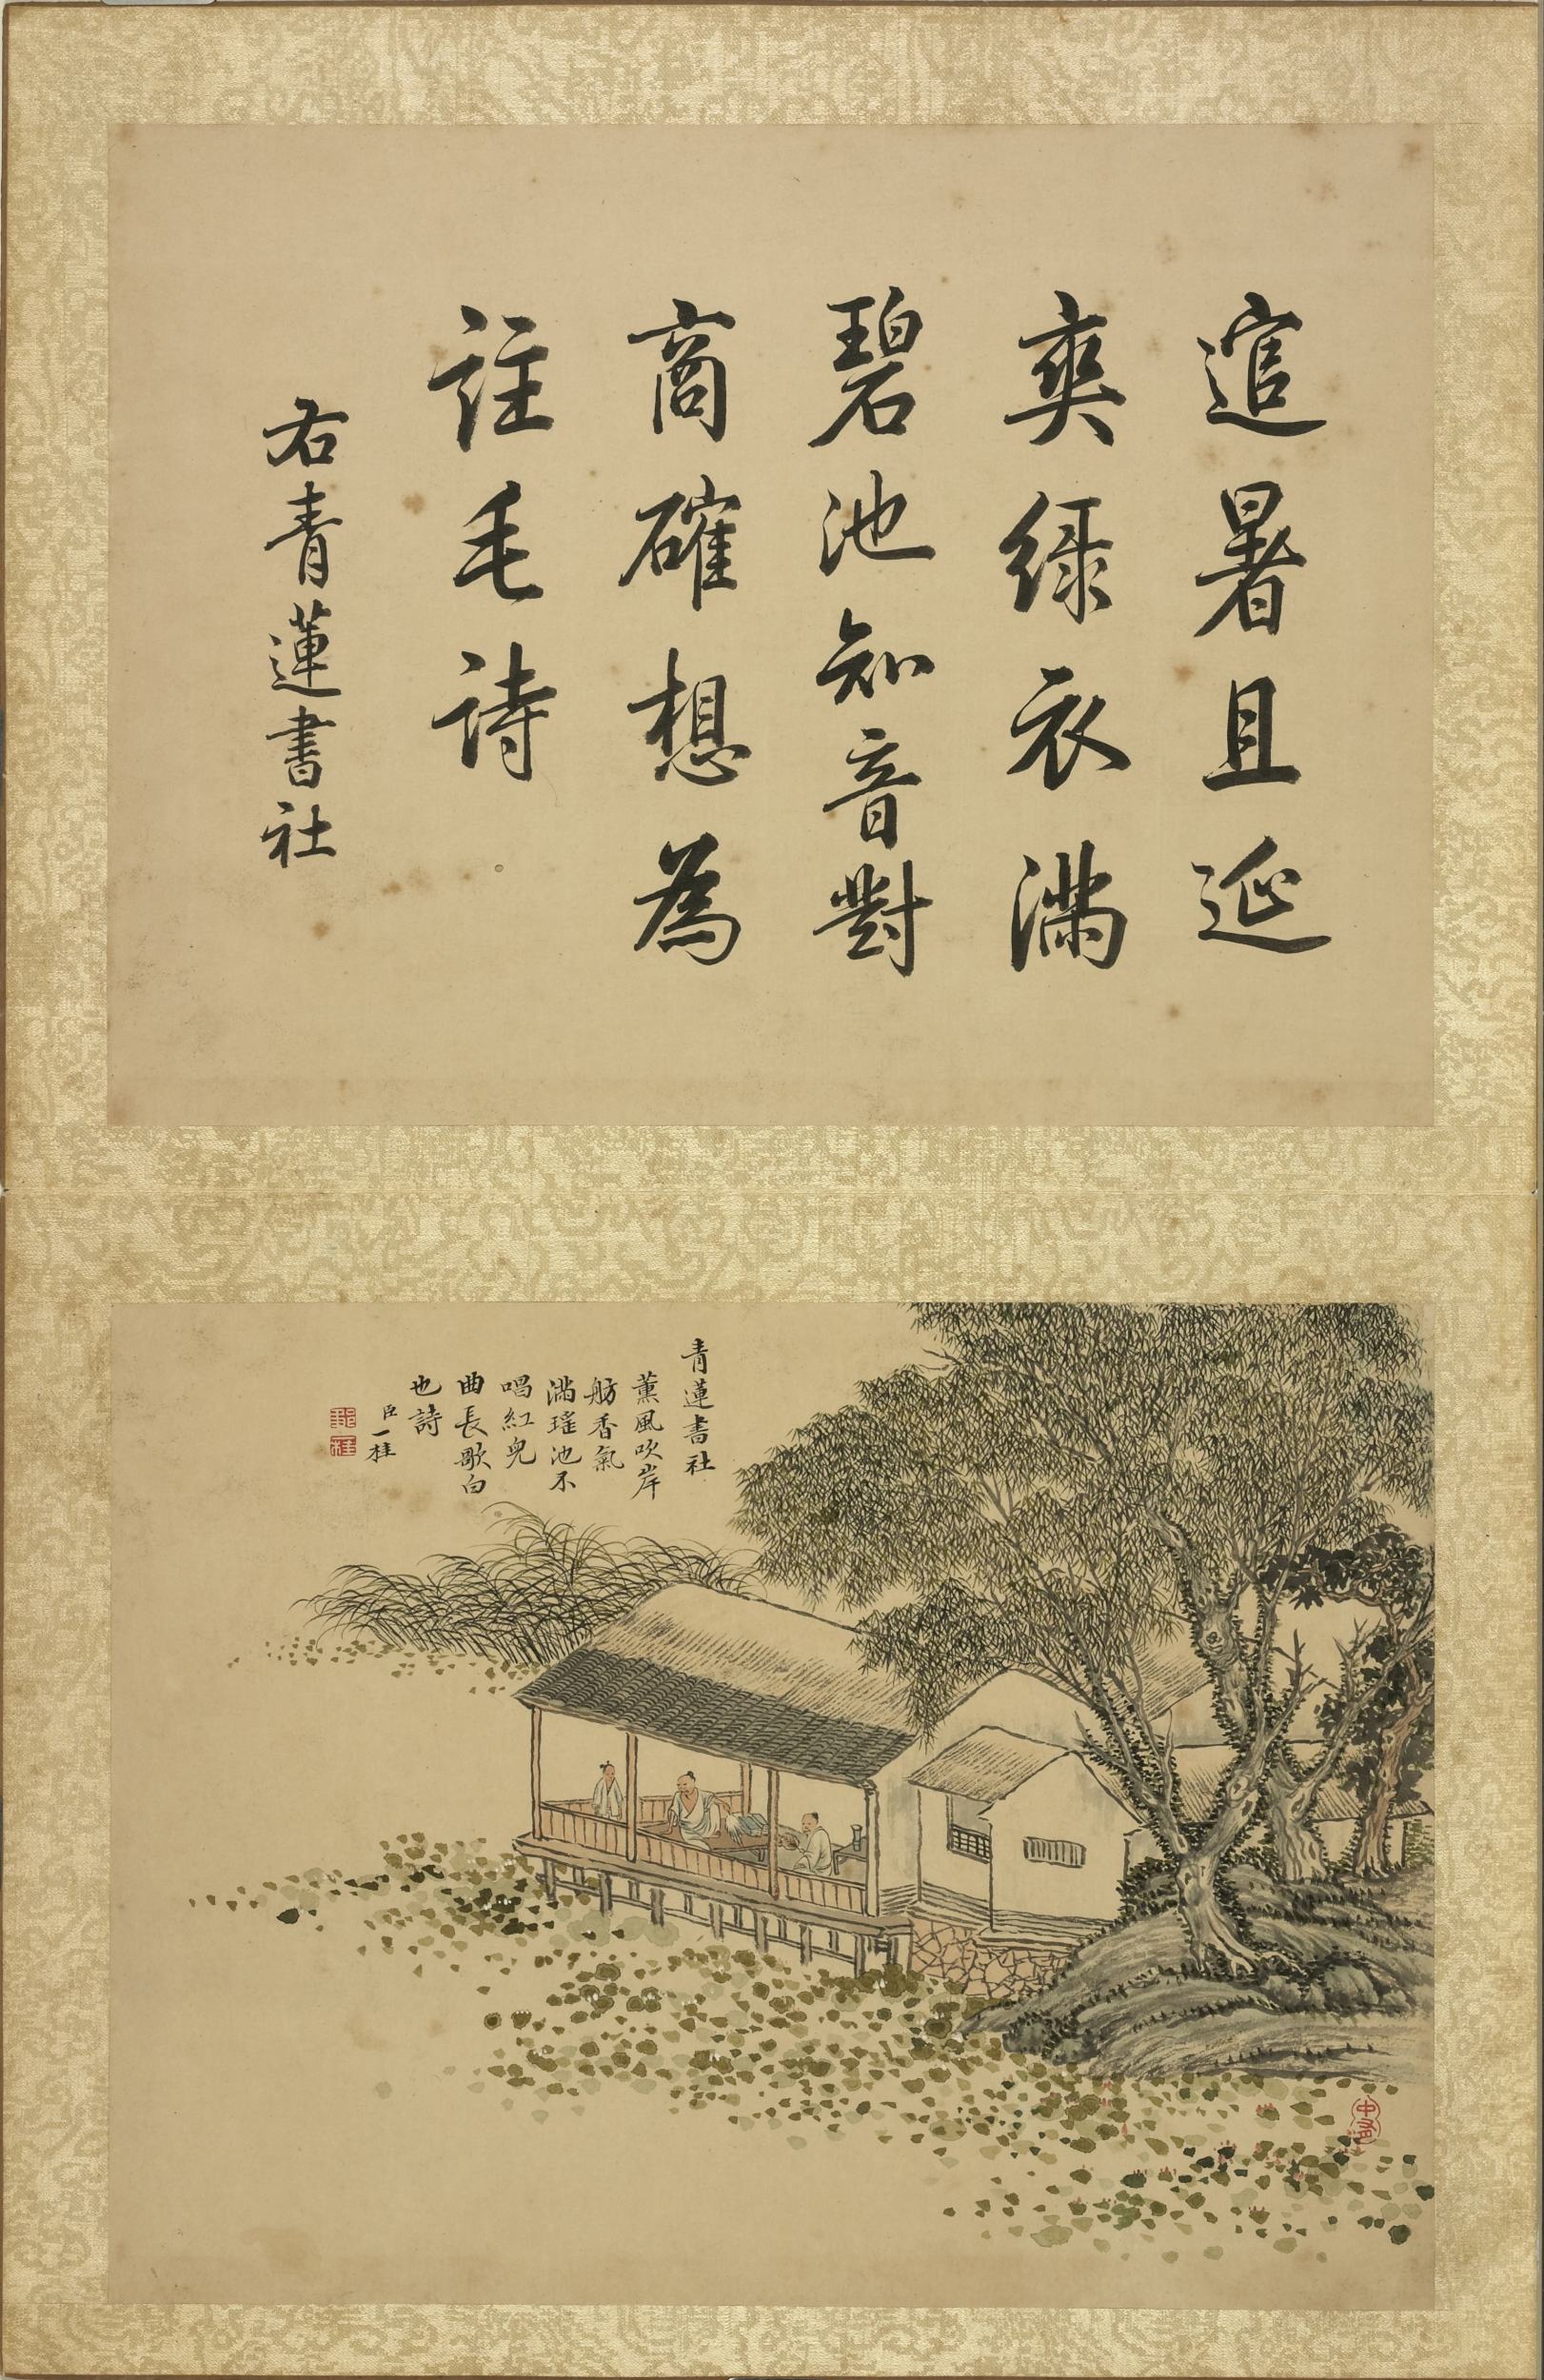 逭暑且延
爽綠衣滿
碧池知音對
商確想為
註毛詩
右青蓮書社
青蓮書社
薰風吹岸
舫香氣
滿瑤池不
唱紅兒
曲長歌白
也詩
臣一桂